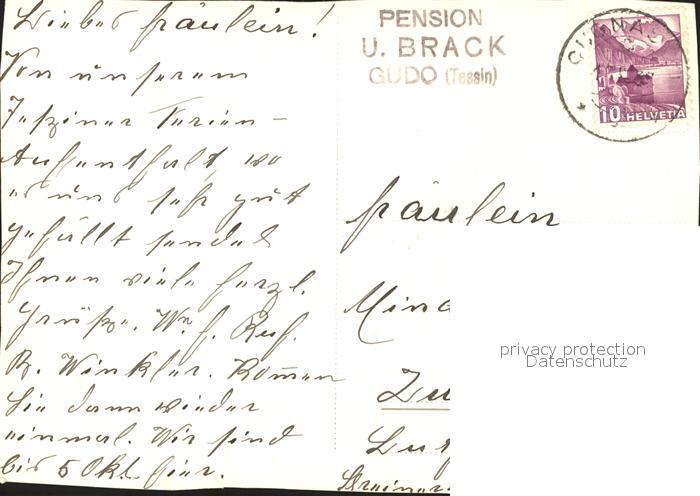 Liebes Fräulein!
Von unserem
Tessiner Ferien-
Aufenthalt, wo
es uns sehr gut
gefällt sendet
Ihnen viele herzl.
Grüße.
R. Winkler. Kommen
Sie dann wieder
einmal. Wir sind
bis 5 Okt. hier.
PENSION
U. BRACK
GUDO (Tessin)
10 HELVETIA
Fräulein
privacy protection
Datenschutz